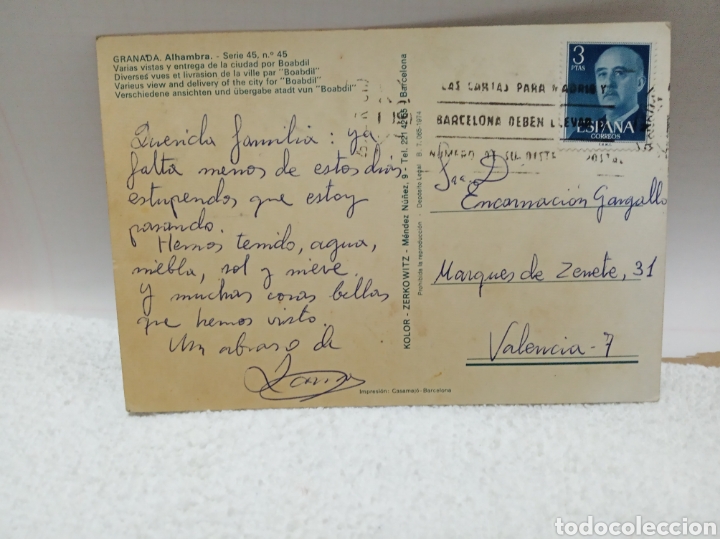 GRANADA. Alhambra. - Serie 45, n.º 45
Varias vistas y entrega de la ciudad por Boabdil
Diverses vues et livrasion de la ville par "Boabdil"
Varieus view and delivery of the city for "Boabdil"
Verschiedene ansichten und übergabe atadt vun "Boabdil"
Querida familia: ya
falta menos de estos días
estupendos que estoy
pasando.
Hemos tenido, agua,
niebla, sol y nieve.
y muchas cosas bellas
que hemos visto.
Un abrazo de
KOLOR - ZERKOWITZ - Méndez Núñez, 9 - Tel. 221 42 65 - Barcelona
Prohibida la reproducción - Depósito Legal B. T. 065-1974
Impresión: Casamajó-Barcelona
3
PTAS
ESPAÑA
LAS CARTAS PARA MADRID Y
BARCELONA DEBEN LLEVAR
NUMERO DE SU DISTR POSTAL
Sra. D
Encarnación Gargallo
Marques de Zenete, 31
Valencia-7
todocoleccion